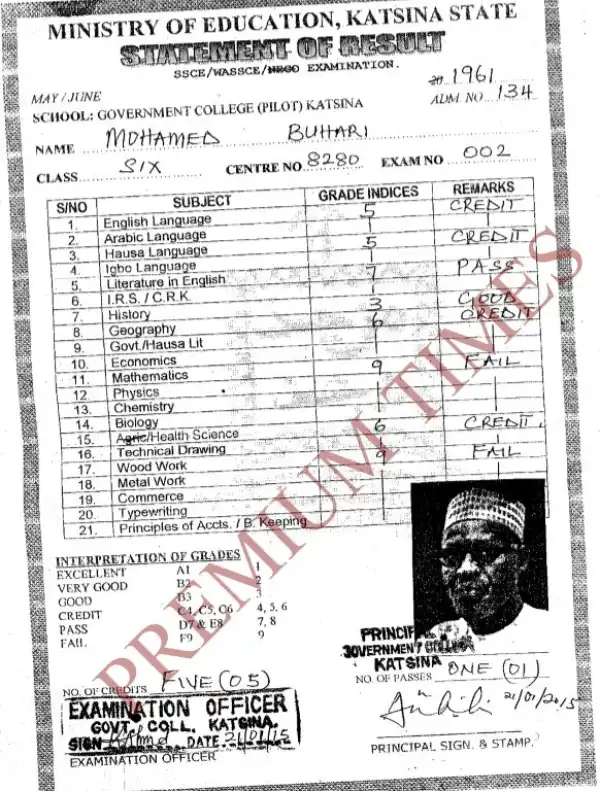 MINISTRY OF EDUCATION, KATSINA STATE
STATEMENT OF RESULT
SSCE/WASSCE/NECO EXAMINATION.
MAY / JUNE 20 1961
SCHOOL: GOVERNMENT COLLEGE (PILOT) KATSINA ADM. NO. 134
NAME MOHAMED BUHARI
CLASS SIX CENTRE NO. 8280 EXAM NO 002
S/NO SUBJECT GRADE INDICES REMARKS
1. English Language 5 CREDIT
2. Arabic Language
3. Hausa Language 5 CREDIT
4. Igbo Language
5. Literature in English 7 PASS
6. I.R.S. / C.R.K.
7. History 3 GOOD
8. Geography 6 CREDIT
9. Govt./Hausa Lit
10. Economics
11. Mathematics 9 FAIL
12 Physics
13. Chemistry
14. Biology
15. Agric/Health Science 6 CREDIT.
16. Technical Drawing 9 FAIL
17. Wood Work
18. Metal Work
19. Commerce
20. Typewriting
21. Principles of Accts. / B. Keeping
INTERPRETATION OF GRADES
EXCELLENT A1 1
VERY GOOD B2 2
GOOD B3 3
CREDIT C4, C5, C6 4, 5, 6
PASS D7 & E8 7, 8
FAIL F9 9
PREMIUM TIMES
PRINCIPAL
GOVERNMENT COLLEGE
KATSINA
NO. OF CREDITS FIVE (05) NO. OF PASSES ONE (01)
EXAMINATION OFFICER
GOVT. COLL. KATSINA.
SIGN DATE 21/01/15
EXAMINATION OFFICER
21/01/2015
PRINCIPAL SIGN. & STAMP.